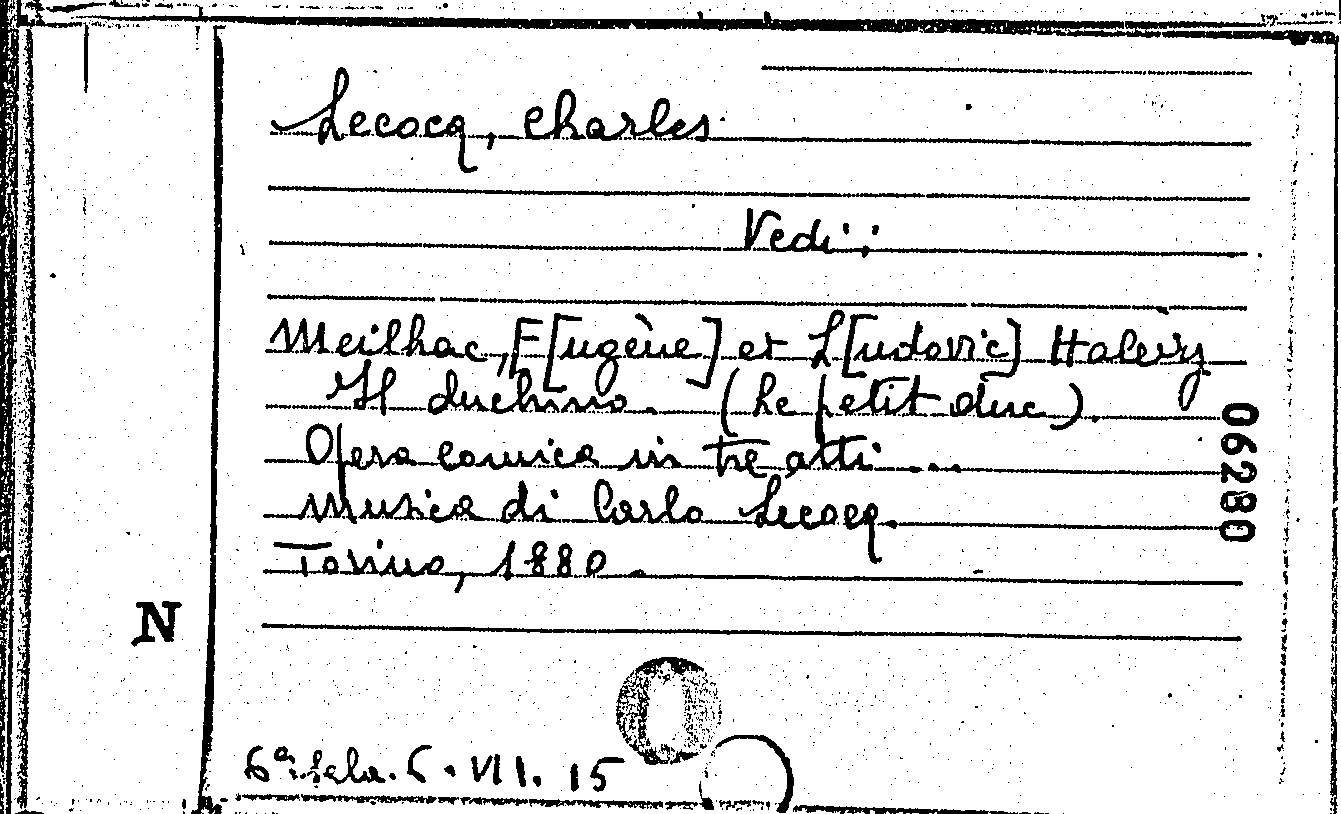 Lecocq, Charles
Vedi:
Meilhac, E[ugène] et L[udovic] Halevy
Il duchino. (Le petit duc).
Opera comica in tre atti ...
Musica di Carlo Lecocq.
Torino, 1880.
06280
N
6ª Sala. 6. VII. 15